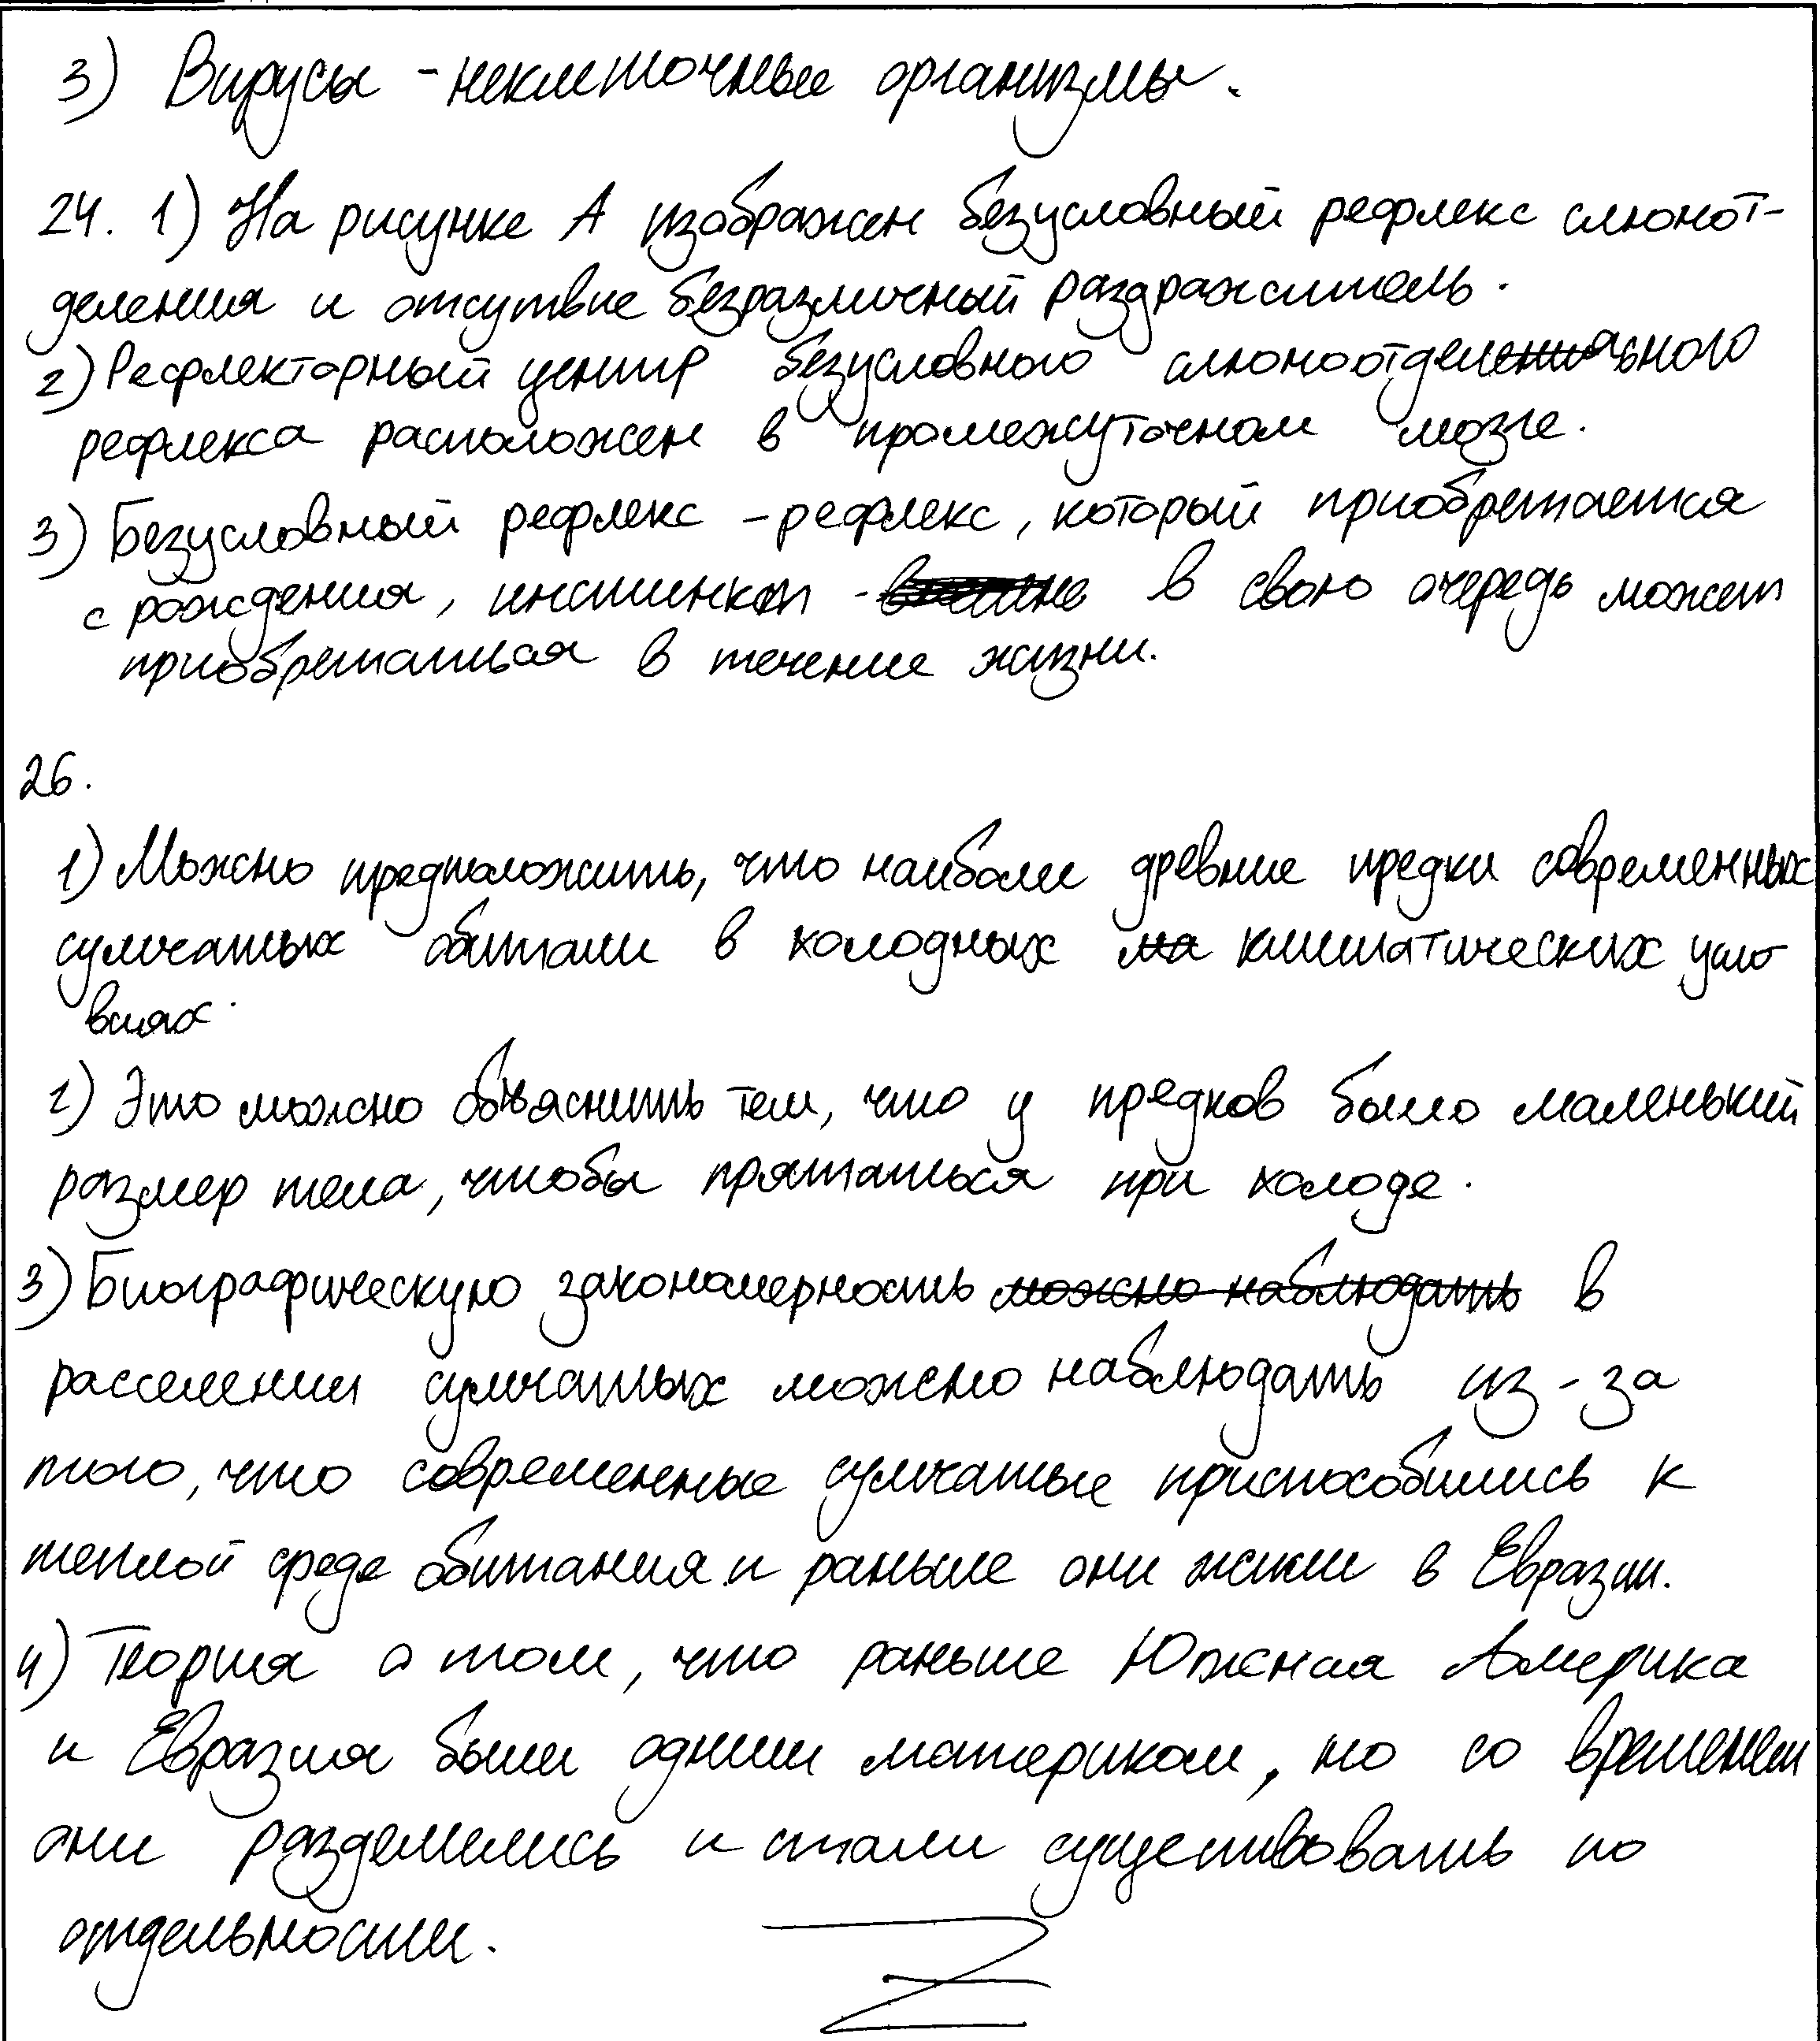 3) Вирусы - неклеточные организмы.
24. 1) На рисунке А изображен безусловный рефлекс слюноот-
деления и отсутвие безразличный раздражитель.
2) Рефлекторный центр безусловного слюноотдельного
рефлекса расположен в промежуточном мозге.
3) Безусловный рефлекс - рефлекс, который приобретается
с рождения, инстинкт - в свою очередь может
приобретаться в течение жизни.
26.
1) Можно предположить, что наиболи древние предки современных
сумчатых обитали в холодных климатических усло
виях.
2) Это можно объяснить тем, что у предков было маленький
размер тела, чтобы прятаться при холоде.
3) Биографическую закономерность можно наблюдать в
расселении сумчатых можно наблюдать из-за
того, что современные сумчатые приспособились к
теплой среде обитания и раньше они жили в Евразии.
4) Теория о том, что раньше Южная Америка
и Евразия были одним материком, но со временем
они разделились и стали существовать по
отдельности.